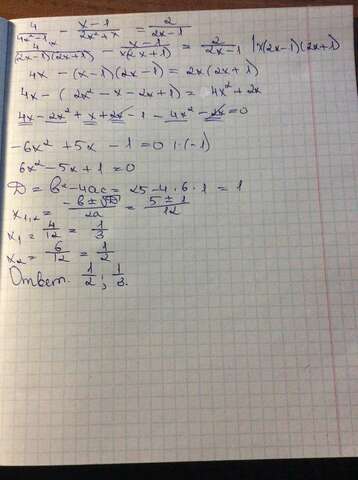 4/(4x²-1) - (x-1)/(2x²+x) = 2/(2x-1)
4/((2x-1)(2x+1)) - (x-1)/(x(2x+1)) = 2/(2x-1) |·x(2x-1)(2x+1)
4x - (x-1)(2x-1) = 2x(2x+1)
4x - (2x²-x-2x+1) = 4x²+2x
4x-2x²+x+2x-1-4x²-2x=0
-6x²+5x-1=0 |·(-1)
6x²-5x+1=0
D = b²-4ac = 25-4·6·1 = 1
x₁,₂ = (-b±√D)/2a = (5±1)/12
x₁ = 4/12 = 1/3
x₂ = 6/12 = 1/2
Ответ. 1/2; 1/3.